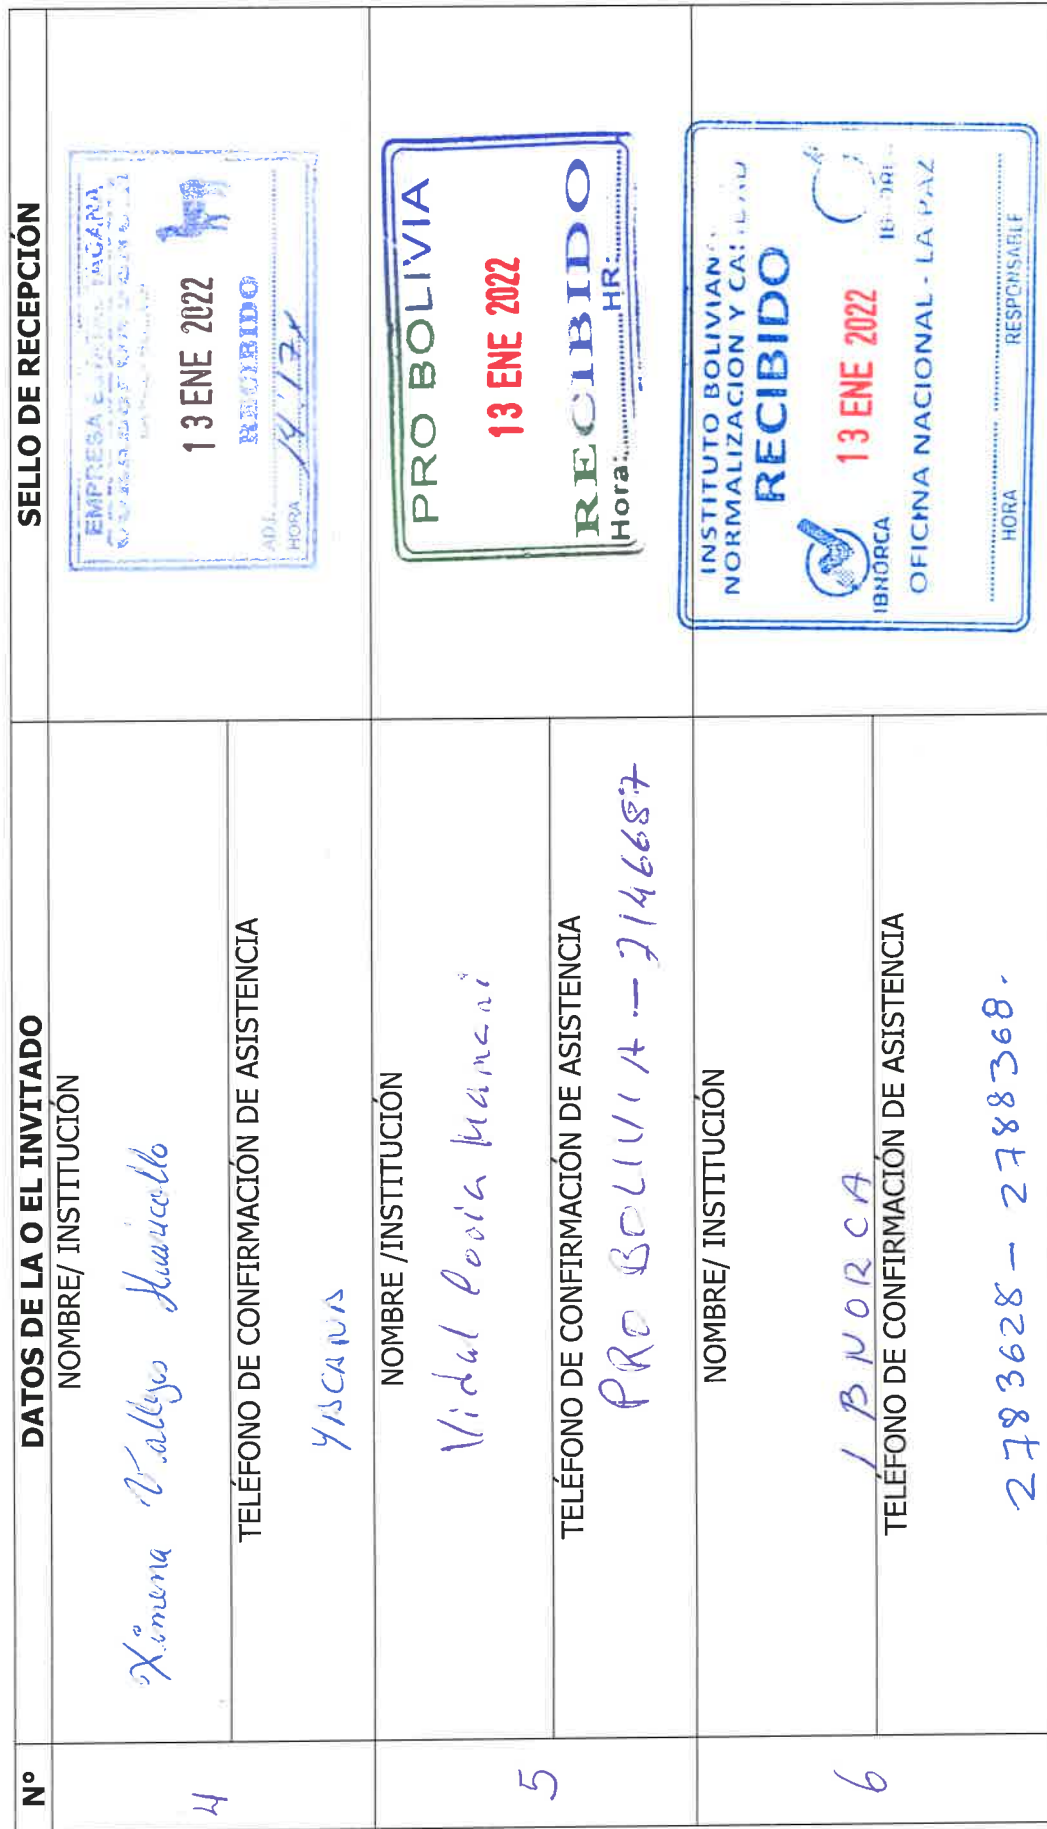 Nº
DATOS DE LA O EL INVITADO
SELLO DE RECEPCIÓN
4
NOMBRE/ INSTITUCIÓN
Ximena Vallejos Huaricollo
TELÉFONO DE CONFIRMACIÓN DE ASISTENCIA
YACANA
EMPRESA
13 ENE 2022
RECIBIDO
ADJ.
HORA 14:17
5
NOMBRE /INSTITUCIÓN
Vidal Coria Mamani
TELÉFONO DE CONFIRMACIÓN DE ASISTENCIA
PRO BOLIVIA - 2146687
PRO BOLIVIA
13 ENE 2022
RECIBIDO
Hora: HR:
6
NOMBRE/ INSTITUCIÓN
IBNORCA
TELÉFONO DE CONFIRMACIÓN DE ASISTENCIA
2783628 - 2788368.
INSTITUTO BOLIVIAN
NORMALIZACION Y CALIDAD
RECIBIDO
13 ENE 2022
IBNORCA
OFICINA NACIONAL - LA PAZ
HORA RESPONSABLE